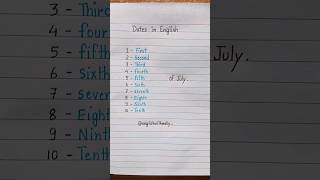 Dates In English
1 - First
2 - Second
3 - Third
4 - fourth
5 - fifth
6 - Sixth
7 - seventh
8 - Eighth
9 - Ninth
10 - Tenth
of July.
3 - Third
4 - fourt
5 - fifth
6 - sixth
7 - seven
8 - Eight
9 - Ninth
10 - Tenth
July.